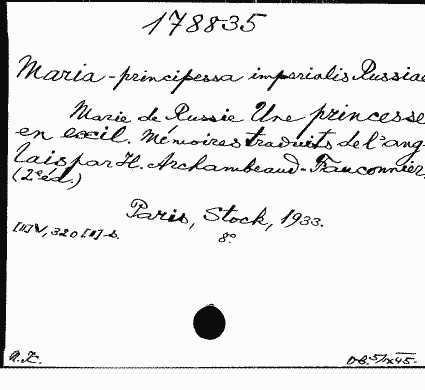 178835
Maria - principessa imperialis Russiae
Marie de Russie Une princesse
en exil. Mémoires traduits de l'ang-
lais par H. Archambeaud-Fauconnier.
(2e éd.)
Paris, Stock, 1933.
[II] V, 320 [II]-s. 8°